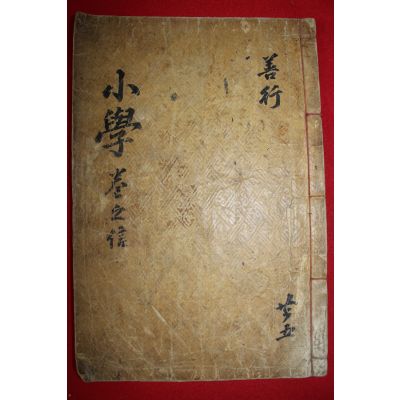 善行
共五
小學 卷之信